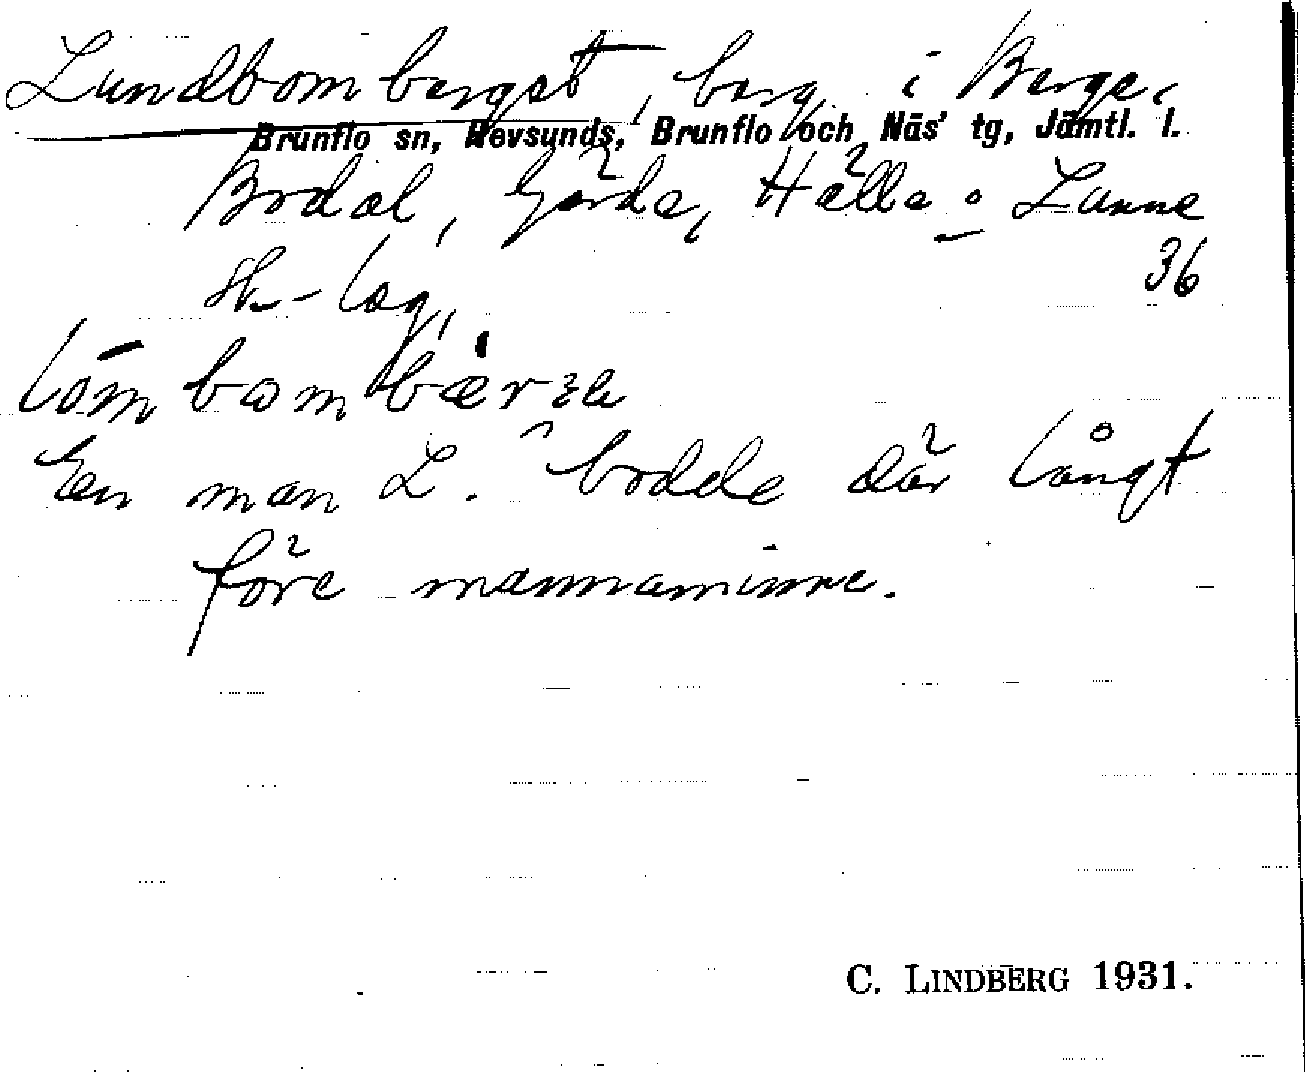 Lundbombergst, berg i Berge,
Brunflo sn, Revsunds, Brunflo och Näs' tg, Jämtl. l.
Bodal, Gärde, Hälle o Lunne
sk-lag,
36
En man L. bodde där långt
före mannaminne.
C. LINDBERG 1931.